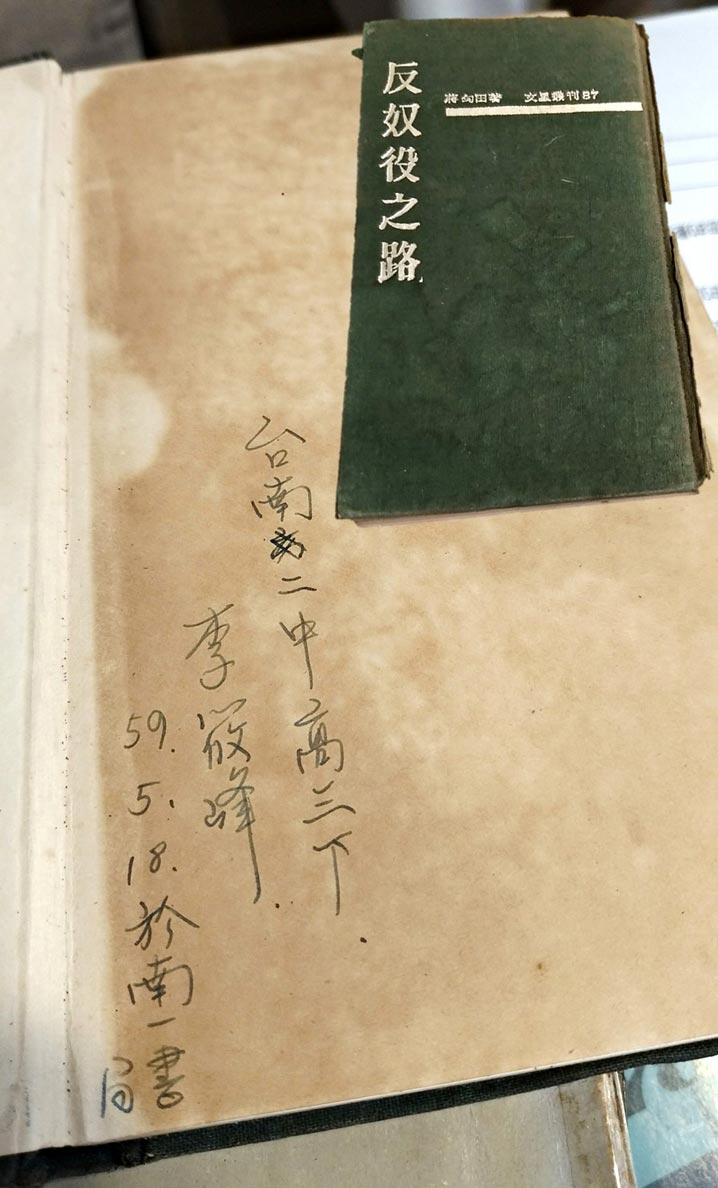 反奴役之路
蔣勻田著 文星叢刊87
台南二中高三下
李筱峰
59.5.18.於南一書局